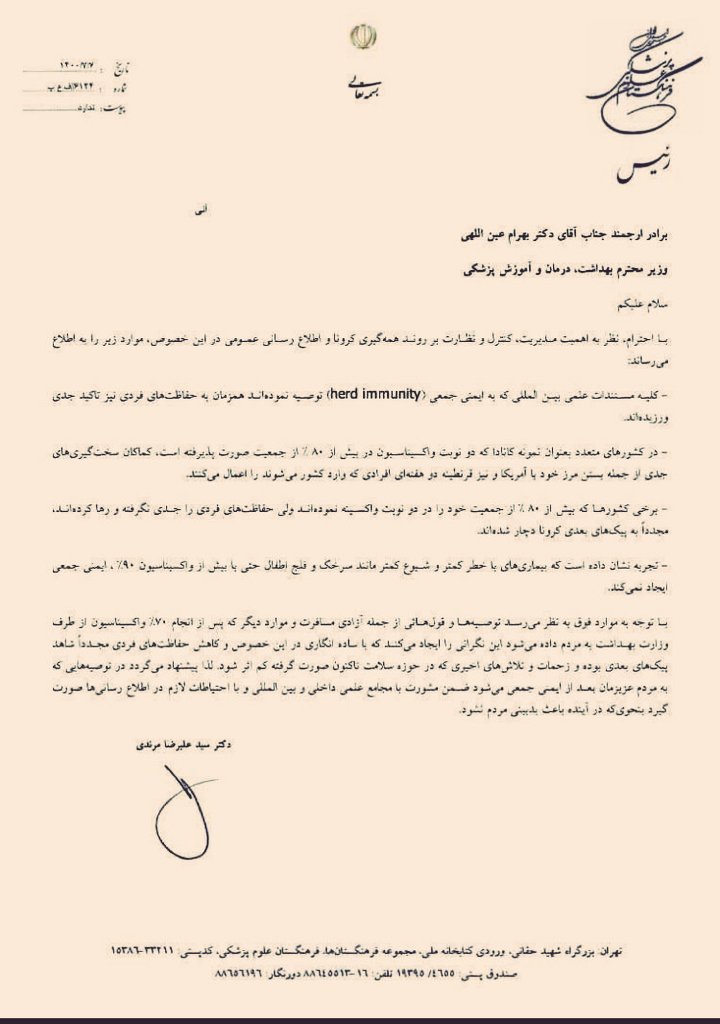 جمهوری اسلامی ایران
فرهنگستان علوم پزشکی
رئیس
بسمه تعالی
تاریخ: ۱۴۰۰/۷/۷
شماره: ۶۱۲۴/ف ع پ
پیوست: ندارد
آنی
برادر ارجمند جناب آقای دکتر بهرام عین اللهی
وزیر محترم بهداشت، درمان و آموزش پزشکی
سلام علیکم
با احترام، نظر به اهمیت مدیریت، کنترل و نظارت بر روند همه‌گیری کرونا و اطلاع رسانی عمومی در این خصوص، موارد زیر را به اطلاع
می‌رساند:
- کلیه مستندات علمی بین المللی که به ایمنی جمعی (herd immunity) توصیه نموده‌اند همزمان به حفاظت‌های فردی نیز تاکید جدی
ورزیده‌اند.
- در کشورهای متعدد بعنوان نمونه کانادا که دو نوبت واکسیناسیون در بیش از ۸۰ ٪ از جمعیت صورت پذیرفته است، کماکان سخت‌گیری‌های
جدی از جمله بستن مرز خود با آمریکا و نیز قرنطینه دو هفته‌ای افرادی که وارد کشور می‌شوند را اعمال می‌کنند.
- برخی کشورها که بیش از ۸۰ ٪ از جمعیت خود را در دو نوبت واکسینه نموده‌اند ولی حفاظت‌های فردی را جدی نگرفته و رها کرده‌اند،
مجدداً به پیک‌های بعدی کرونا دچار شده‌اند.
- تجربه نشان داده است که بیماری‌های با خطر کمتر و شیوع کمتر مانند سرخک و فلج اطفال حتی با بیش از واکسیناسیون ۹۰٪ ، ایمنی جمعی
ایجاد نمی‌کند.
با توجه به موارد فوق به نظر می‌رسد توصیه‌ها و قول‌هائی از جمله آزادی مسافرت و موارد دیگر که پس از انجام ۷۰٪ واکسیناسیون از طرف
وزارت بهداشت به مردم داده می‌شود این نگرانی را ایجاد می‌کند که با ساده انگاری در این خصوص و کاهش حفاظت‌های فردی مجدداً شاهد
پیک‌های بعدی بوده و زحمات و تلاش‌های اخیری که در حوزه سلامت تاکنون صورت گرفته کم اثر شود. لذا پیشنهاد می‌گردد در توصیه‌هایی که
به مردم عزیزمان بعد از ایمنی جمعی می‌شود ضمن مشورت با مجامع علمی داخلی و بین المللی و با احتیاطات لازم در اطلاع رسانی‌ها صورت
گیرد بنحوی‌که در آینده باعث بدبینی مردم نشود.
دکتر سید علیرضا مرندی
تهران، بزرگراه شهید حقانی، ورودی کتابخانه ملی، مجموعه فرهنگستان‌ها، فرهنگستان علوم پزشکی، کدپستی: ۳۳۲۱۱-۱۵۳۸۶
صندوق پستی: ۴۶۵۵/ ۱۹۳۹۵ تلفن: ۱۶-۸۸۶۴۵۵۱۳ دورنگار: ۸۸۶۵۶۱۹۶